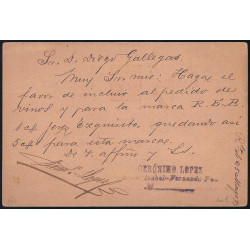 Sr. D. Diego Gallegos
Muy Sr. mio: Haga el
favor de incluir al pedido de
vinos y para la marca R.B.B
1 cj Jerez Exquisito, quedando así
5 cj para esta marca.
De V. affmo y S.
GERÓNIMO LOPEZ
Isabel-Fernando Poo